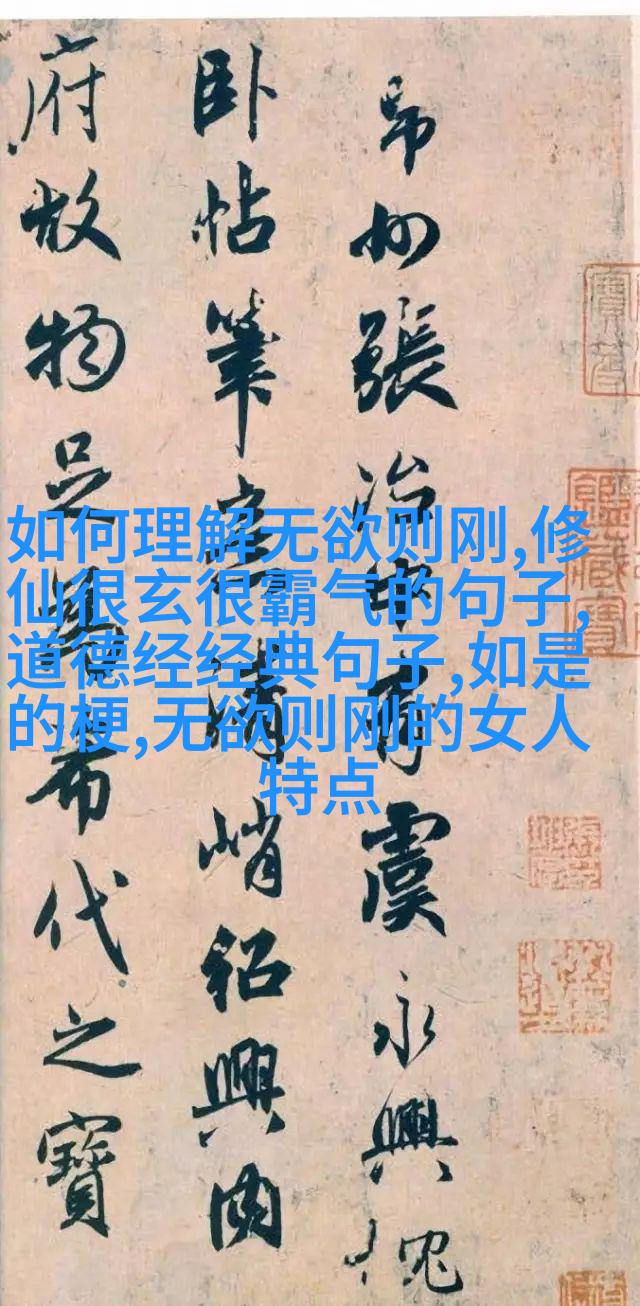 張治中有虞永興枕
臥帖筆意清峭紹興内
府故物足希代之寶
如何理解无欲则刚,修
仙很玄很霸气的句子,
道德经经典句子,如是
的梗,无欲则刚的女人
特点